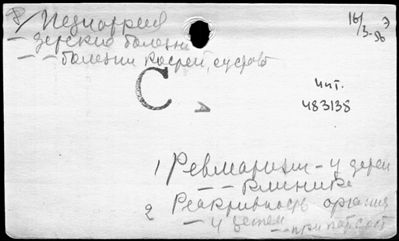 Педиатрия
16/3-56 Э
— детские болезни
— — болезни костей, суставов
С
чит.
483138
1 Ревматизм — у детей
— — клиника
2 Реактивность организ
— у детей — при